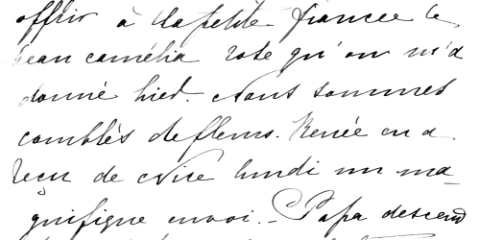 offrir à la petite fiancée le
beau camélia rose qu'on m'a
donné hier. Nous sommes
comblés de fleurs. Renée en a
reçu de Nice lundi un ma-
gnifique envoi. - Papa descend